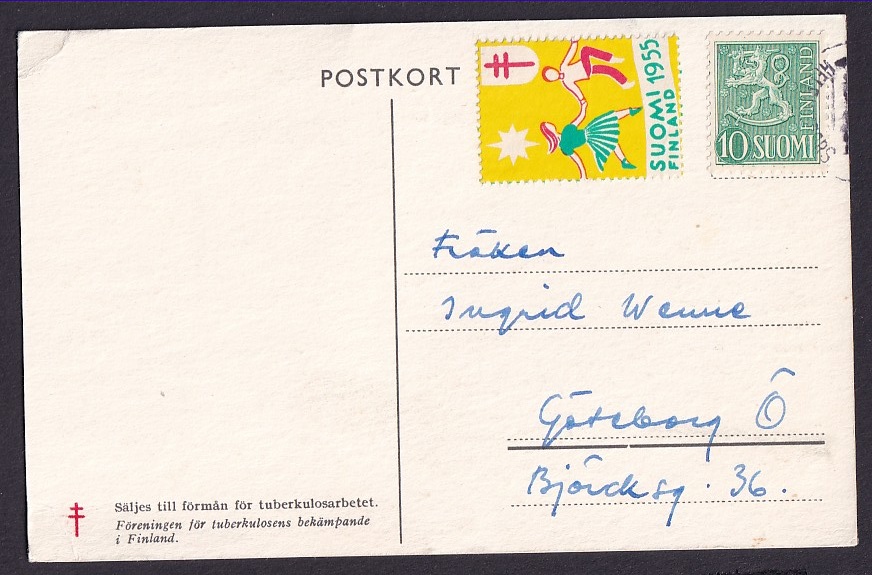 POSTKORT
SUOMI 1955
FINLAND
FINLAND
10 SUOMI
Fröken
Ingrid Wenne
Göteborg Ö
Björcksg. 36.
Säljes till förmån för tuberkulosarbetet.
Föreningen för tuberkulosens bekämpande
i Finland.